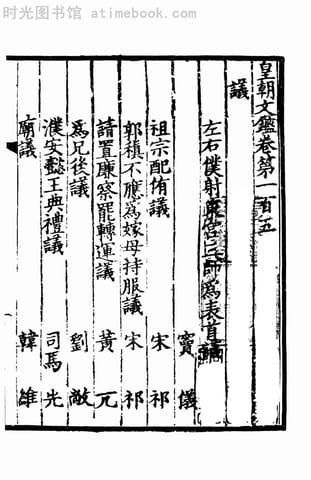 时光图书馆 atimebook.com
皇朝文鑑卷第一百五
議
左右僕射東宮三師爲表首議
竇儀
祖宗配侑議 宋祁
郭稹不應爲嫁母持服議 宋祁
請置廉察罷轉運議 黃亢
爲兄後議 劉敞
濮安懿王典禮議 司馬光
廟議 韓維